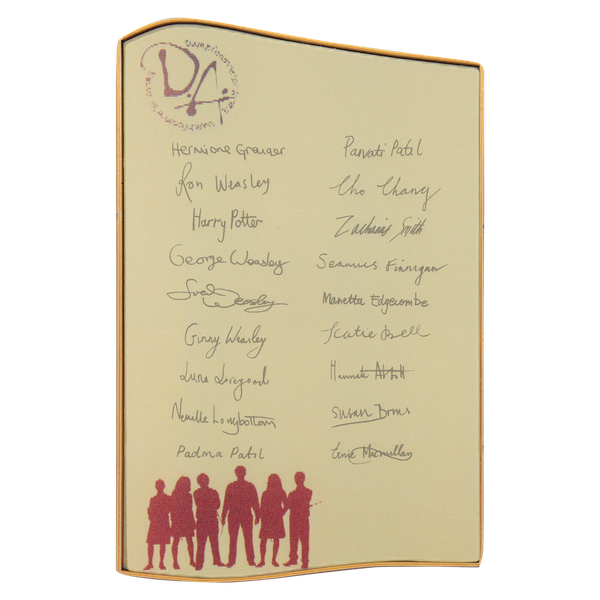 D.A.
Hermione Granger
Ron Weasley
Harry Potter
George Weasley
Fred Weasley
Ginny Weasley
Luna Lovegood
Neville Longbottom
Padma Patil
Parvati Patil
Cho Chang
Zacharias Smith
Seamus Finnigan
Marietta Edgecombe
Katie Bell
Hannah Abbott
Susan Bones
Ernie Macmillan